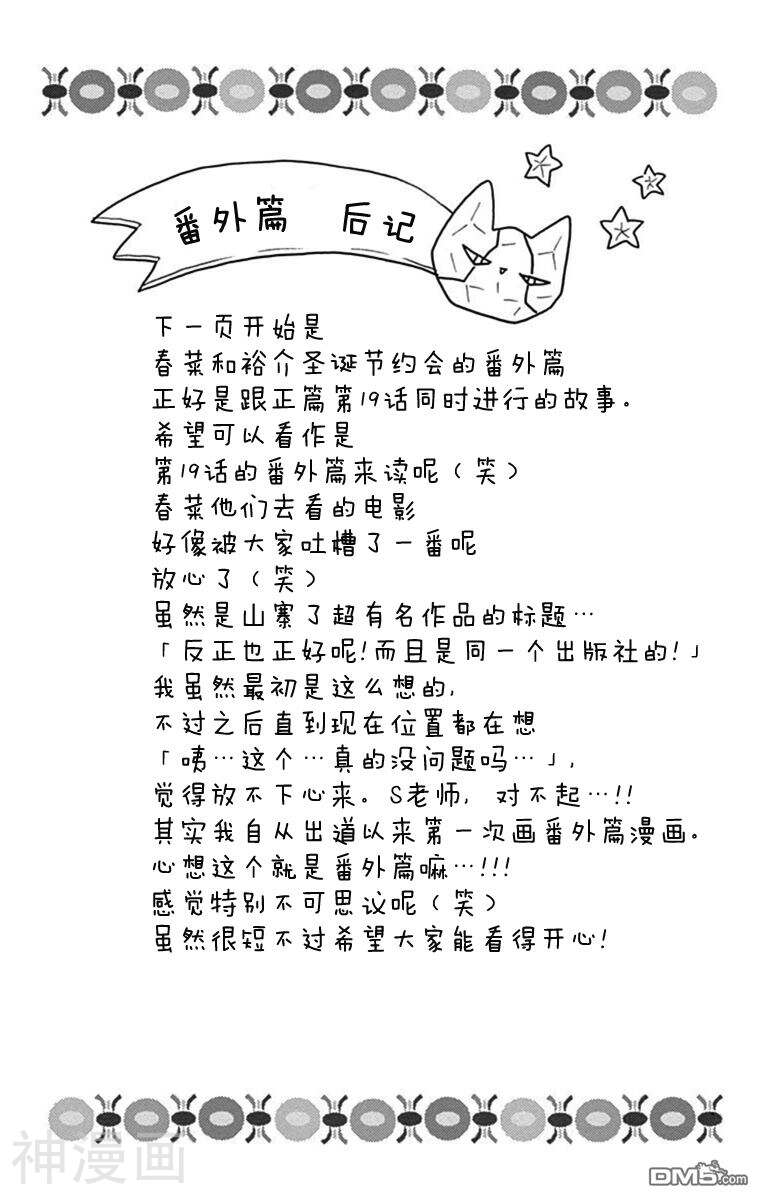 番外篇 后记
下一页开始是
春菜和裕介圣诞节约会的番外篇
正好是跟正篇第19话同时进行的故事。
希望可以看作是
第19话的番外篇来读呢（笑）
春菜他们去看的电影
好像被大家吐槽了一番呢
放心了（笑）
虽然是山寨了超有名作品的标题…
「反正也正好呢!而且是同一个出版社的!」
我虽然最初是这么想的,
不过之后直到现在位置都在想
「咦…这个…真的没问题吗…」,
觉得放不下心来。S老师, 对不起…!!
其实我自从出道以来第一次画番外篇漫画。
心想这个就是番外篇嘛…!!!
感觉特别不可思议呢（笑）
虽然很短不过希望大家能看得开心!
神漫画
DM5.com